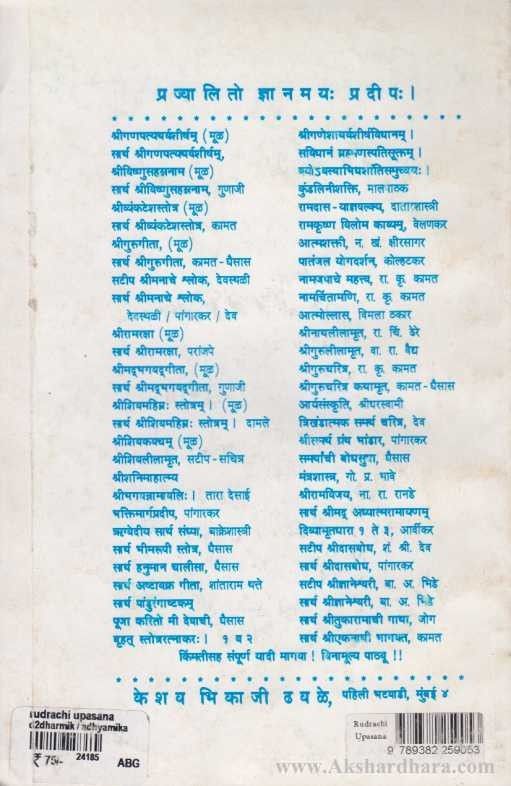 प्रज्वालितो ज्ञानमयः प्रदीपः।
श्रीगणपत्यथर्वशीर्षम् (मूळ)
सार्थ श्रीगणपत्यथर्वशीर्षम्,
श्रीविष्णुसहस्रनाम (मूळ)
सार्थ श्रीविष्णुसहस्रनाम, गुणाजी
श्रीव्यंकटेशस्तोत्र (मूळ)
सार्थ श्रीव्यंकटेशस्तोत्र, कामत
श्रीगुरुगीता, (मूळ)
सार्थ श्रीगुरुगीता, कामत-वैसास
सटीप श्रीमनाचे श्लोक, देवस्थळी
सार्थ श्रीमनाचे श्लोक,
देवस्थळी / पांगारकर / देव
श्रीरामरक्षा (मूळ)
सार्थ श्रीरामरक्षा, परांजपे
श्रीमद्भगवद्गीता, (मूळ)
सार्थ श्रीमद्भगवद्गीता, गुणाजी
श्रीशिवमहिम्नः स्तोत्रम्। (मूळ)
सार्थ श्रीशिवमहिम्नः स्तोत्रम्। दामले
श्रीशिवकवचम् (मूळ)
श्रीशिवलीलामृत, सटीप-सचित्र
श्रीशनिमाहात्म्य
श्रीभगवन्नामावलिः। तारा देसाई
भक्तिमार्गप्रदीप, पांगारकर
ऋग्वेदीय सार्थ संध्या, बाक्रेशास्त्री
सार्थ भीमरूपी स्तोत्र, वैसास
सार्थ हनुमान चालीसा, वैसास
सार्थ अष्टावक्र गीता, शांताराम घत्ते
सार्थ पांडुरंगाष्टकम्
पूजा करितो मी देवाची, वैसास
बृहत् स्तोत्ररत्नाकरः। १ व २
श्रीगणेशाथर्वशीर्षविधानम्।
सविधानं ब्रह्मणस्पतिसूक्तम्।
कुंडलिनीशक्ति, मालपाठक
रामदास-याज्ञवल्क्य, दातारशास्त्री
रामकृष्ण विलोम काव्यम्, वेलणकर
आत्मशक्ती, न. खं. क्षीरसागर
पातंजल योगदर्शन, कोल्हटकर
नामजपाचे महत्त्व, रा. कृ. कामत
नामचिंतामणि, रा. कृ. कामत
आत्मोल्लास, विमला ठकार
श्रीनाथलीलामृत, रा. चिं. ढेरे
श्रीगुरुलीलामृत, वा. रा. वैद्य
श्रीगुरुचरित्र, रा. कृ. कामत
श्रीगुरुचरित्र कथामृत, कामत-वैसास
आर्यसंस्कृति, श्रीधरस्वामी
त्रिखंडात्मक समर्थ चरित्र, देव
श्रीसमर्थ ग्रंथ भांडार, पांगारकर
समर्थांची बोधसुधा, वैसास
मंत्रशास्त्र, गो. प्र. भावे
श्रीरामविजय, ना. रा. रानडे
सार्थ श्रीमद् अध्यात्मरामायणम्
दिव्यामृतधारा १ ते ३, आर्वीकर
सटीप श्रीदासबोध, शं. श्री. देव
सार्थ श्रीदासबोध, पांगारकर
सटीप श्रीज्ञानेश्वरी, बा. अ. भिडे
सार्थ श्रीज्ञानेश्वरी, बा. अ. भिडे
सार्थ श्रीतुकारामाची गाथा, जोग
सार्थ श्रीएकनाथी भागवत, कामत
किंमतीसह संपूर्ण यादी मागवा! विनामूल्य पाठवू!!
केशव भिकाजी ढवळे, पहिली भटवाडी, मुंबई ४
rudrachi upasana
d2dharmik / adhyamika
₹ 75/- 24185 ABG
Rudrachi
Upasana
9 789382 259053
www.Akshardhara.com